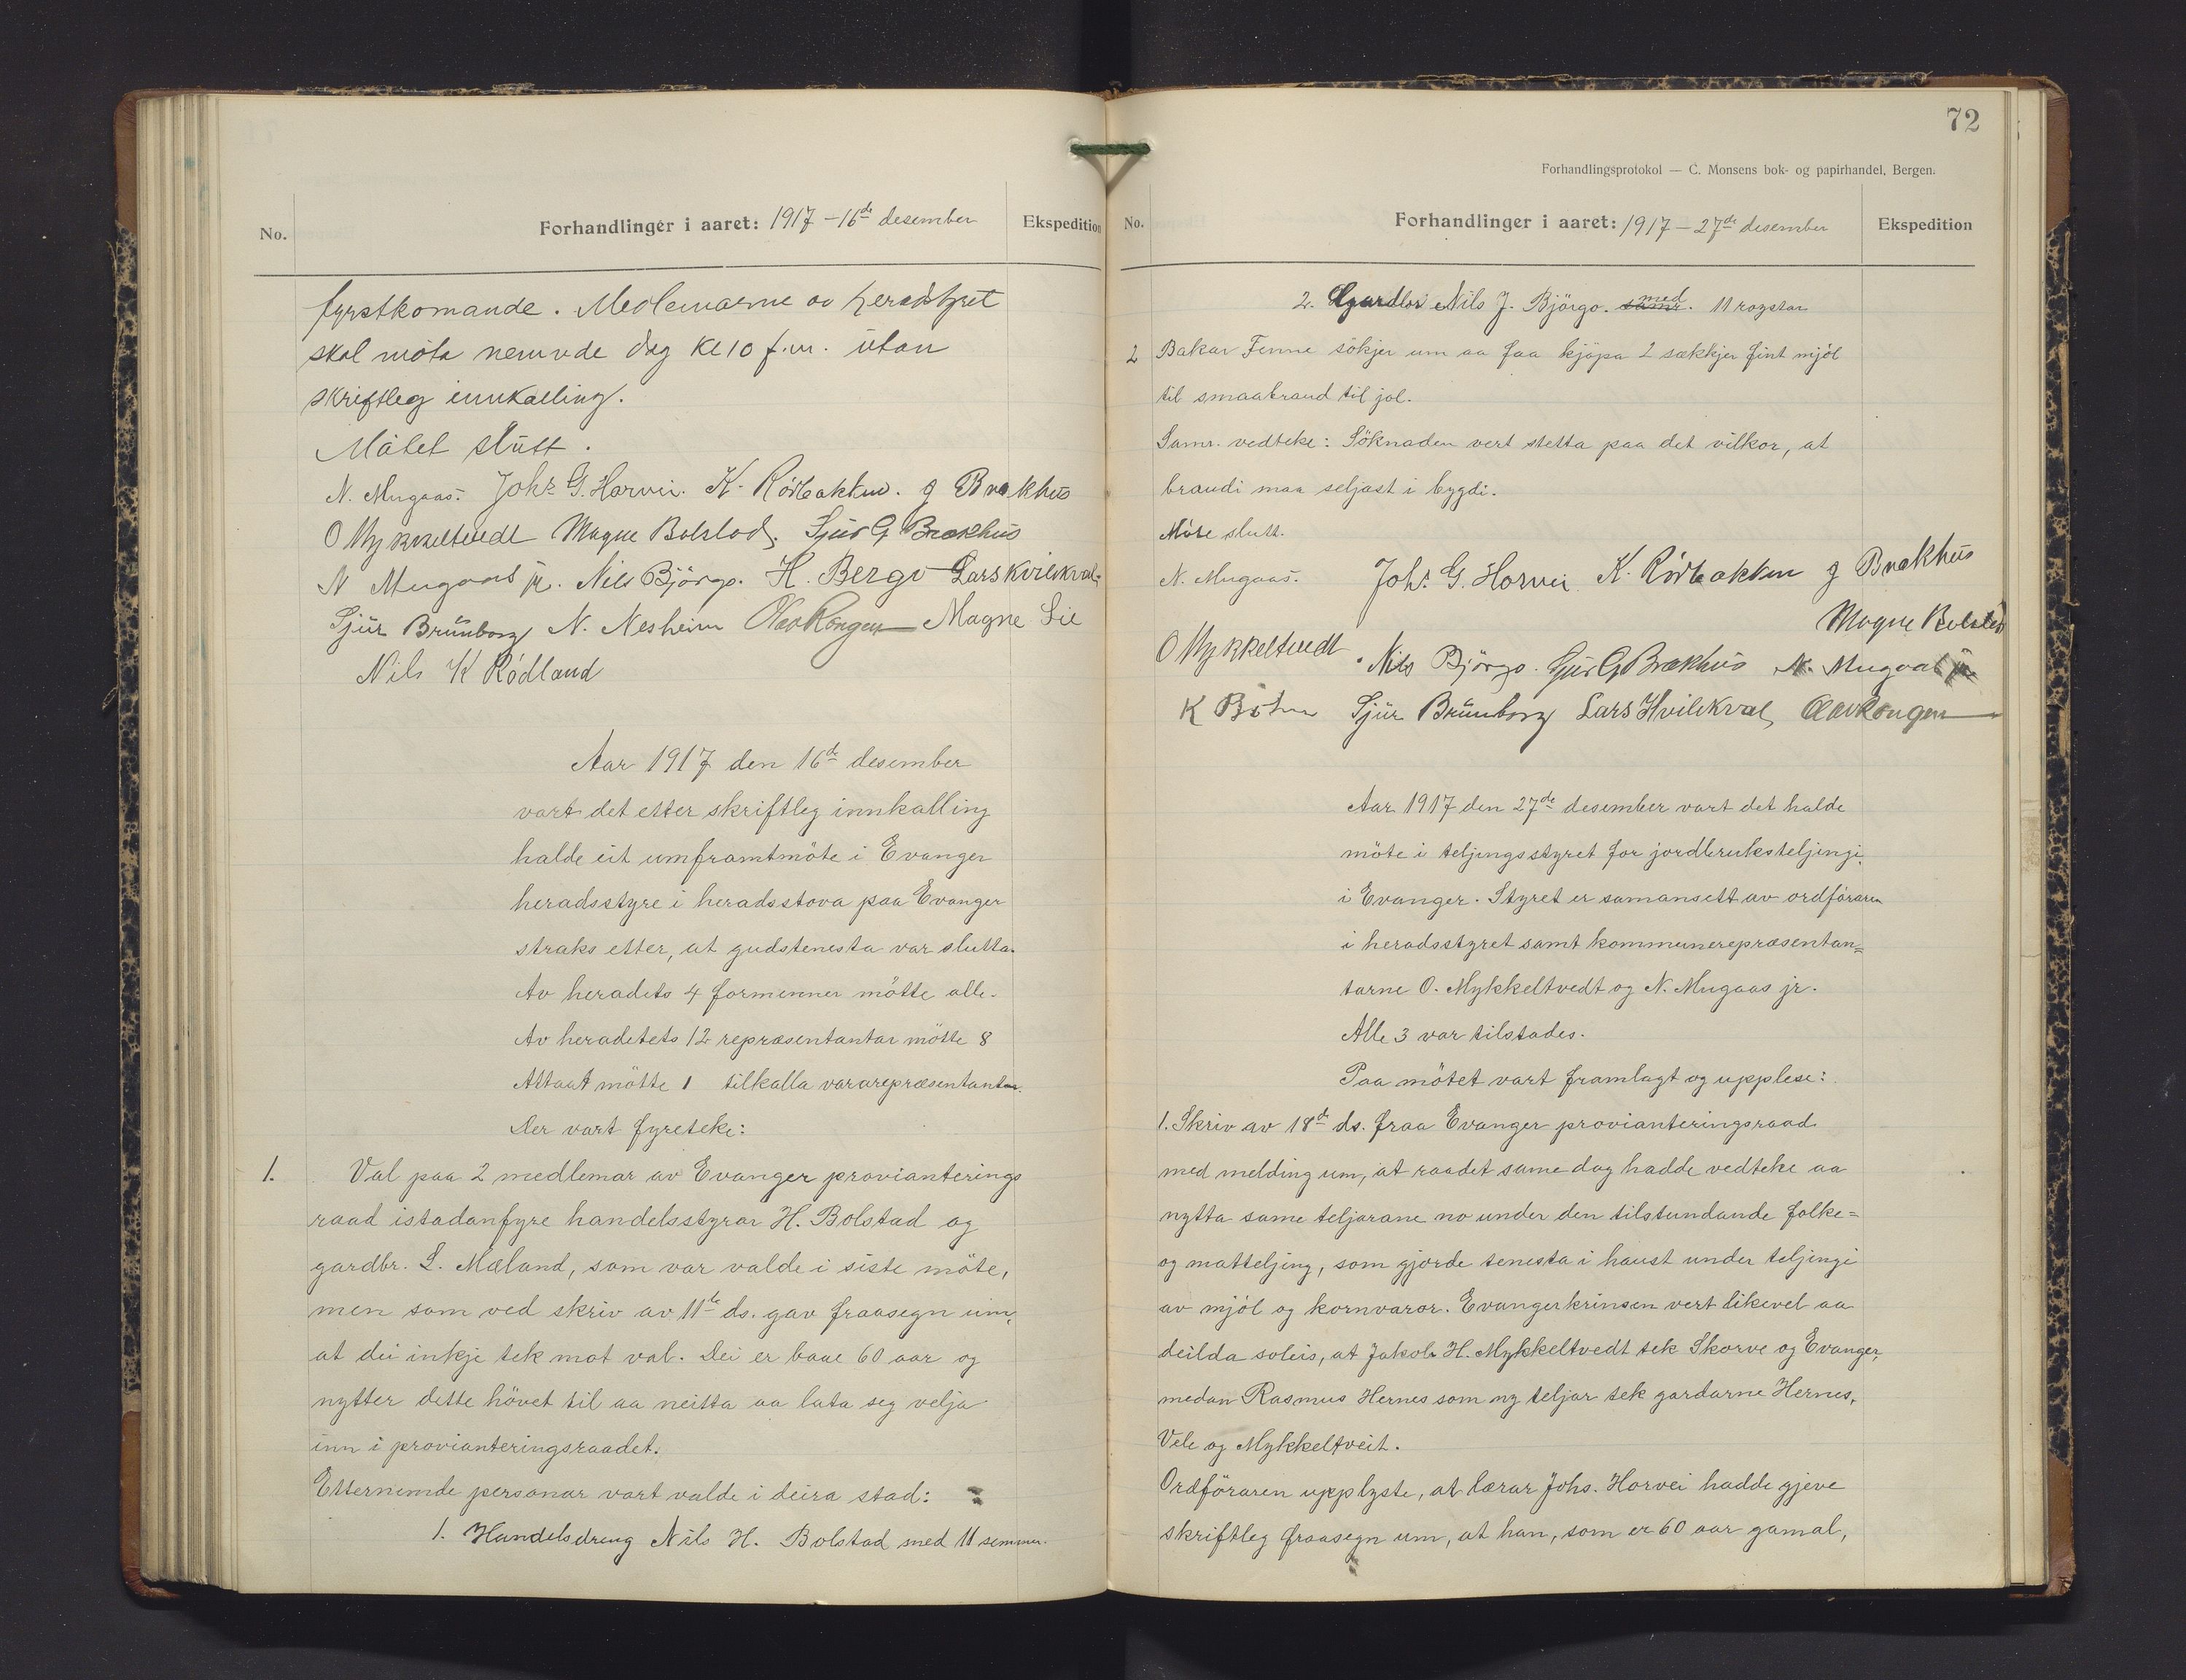 No.
Forhandlinger i aaret: 1917 – 16de desember
Ekspedition
fyrstkomande. Medlemarne av heradstyret
skal møta nemnde dag Kl 10 f.m. utan
skriftleg innkalling.
Møtet slutt.
N. Mugaas. Johs G. Horvei. K. Rödbakken. J Brækhus
O Mykkeltvedt Magne Bolstad. Sjur G Brækhus
N Mugaas jr. Nils Björgo. H. Bergo Lars Kvilekval,
Sjur Brunborg N. Nesheim Olav Rongen Magne Lie
Nils K Rödland
Aar 1917 den 16de desember
vart det etter skriftleg innkalling
halde eit umframtmöte i Evanger
heradsstyre i heradsstova paa Evanger
straks etter, at gudstenesta var slutta.
Av heradets 4 formenner mötte alle.
Av heradetets 12 repræsentantar mötte 8
Attaat mötte 1 tilkalla vararepræsentantar.
Der vart fyreteke:
1. Val paa 2 medlemar av Evanger provianterings
raad istadanfyre handelsstyrar H. Bolstad og
gardbr. L. Mæland, som var valde i siste möte,
men som ved skriv av 11te ds. gav fraasegn um,
at dei inkje tek mot val. Dei er baae 60 aar og
nytter dette hövet til aa neitta aa lata seg velja
inn i provianteringsraadet.
Etternemnde personar vart valde i deira stad:
1. Handelsdreng Nils H. Bolstad med 11 
72
Forhandlingsprotokol — C. Monsens bok- og papirhandel, Bergen.
No.
Forhandlinger i aaret: 1917 – 27de desember
Ekspedition
2. Gardbr Nils J. Björgo. samr. med 11 røystar
2 Bakar Fenne sökjer um aa faa kjöpa 2 sækkjer fint mjöl
til smaabraud til jol.
Samr. vedteke: Söknaden vert stetta paa det vilkor, at
braudi maa seljast i bygdi.
Möte slutt.
N. Mugaas. Johs. G. Horvei. K. Rödbakken J Brækhus
Magne Bolstad
O Mykkeltvedt. Nils Björgo. Sjur G Brækhus N. Mugaas jr
K Sjur Brunborg Lars Kvilekval, Olav Rongen
Aar 1917 den 27de desember vart det halde
möte i teljingsstyret for jordbruksteljingi
i Evanger. Styret er samansett av ordföraren
i heradsstyret samt kommunerepræsentan=
tarne O. Mykkeltvedt og N. Mugaas jr.
Alle 3 var tilstades.
Paa mötet vart framlagt og upplese:
1. Skriv av 18de ds. fraa Evanger provianteringsraad
med melding um, at raadet same dag hadde vedteke aa
nytta same teljarane no under den tilstundande folke=
og matteljing, som gjorde tenesta i haust under teljingi
av mjöl og kornvaror. Evangerkrinsen vert likevel aa
deilda soleis, at Jakob H. Mykkeltvedt tek Skorve og Evanger,
medan Rasmus Hernes som ny teljar tek gardarne Hernes,
Vele og Mykkeltveit.
Ordföraren upplyste, at lærar Johs. Horvei hadde gjeve
skriftleg fraasegn um, at han, som er 60 aar gamal,